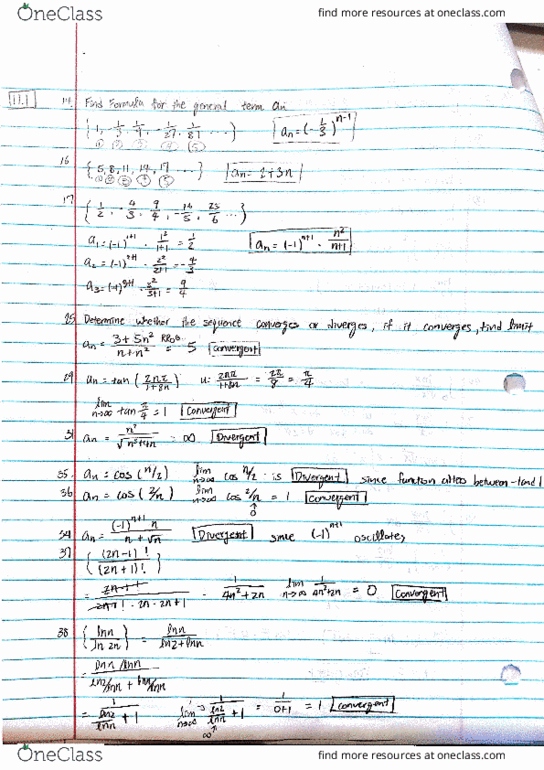 OneClass
find more resources at oneclass.com
11.1
14. Find Formula for the general term an
{1, -1/3, 1/9, -1/27, 1/81 ...} an = (-1/3)^(n-1)
16 {5, 8, 11, 14, 17 ...} an = 2+3n
17 {1/2, -4/3, 9/4, -16/5, 25/6 ...}
a1 = (-1)^(1+1) · 1²/(1+1) = 1/2 an = (-1)^(n+1) · n²/(n+1)
a2 = (-1)^(2+1) · 2²/(2+1) = -4/3
a3 = (-1)^(3+1) · 3²/(3+1) = 9/4
25 Determine whether the sequence converges or diverges, if it converges, find limit
an = (3+5n²)/(n+n²) = 5 convergent
29 an = tan(2nπ/(1+8n)) u: 2nπ/(1+8n) = 2π/8 = π/4
lim n→∞ tan π/4 = 1 Convergent
31 an = n²/√(n³+4n) = ∞ Divergent
35. an = cos(n/2) lim n→∞ cos n/2 is Divergent since function between -1 and 1
36 an = cos(2/n) lim n→∞ cos 2/n = 1 convergent
0
34 an = (-1)^(n+1) n/(n+√n) Divergent since (-1)^(n+1) oscillates
37 {(2n-1)!/(2n+1)!}
1/(4n²+2n) lim n→∞ 1/(4n²+2n) = 0 Convergent
38 {ln n/ln 2n} = ln n/(ln2+ln n)
= (ln n/ln n)/(ln2/ln n + ln n/ln n)
= 1/(ln2/ln n + 1) lim n→∞ 1/(ln2/ln n + 1) = 1/(0+1) = 1 convergent
∞
OneClass
find more resources at oneclass.com